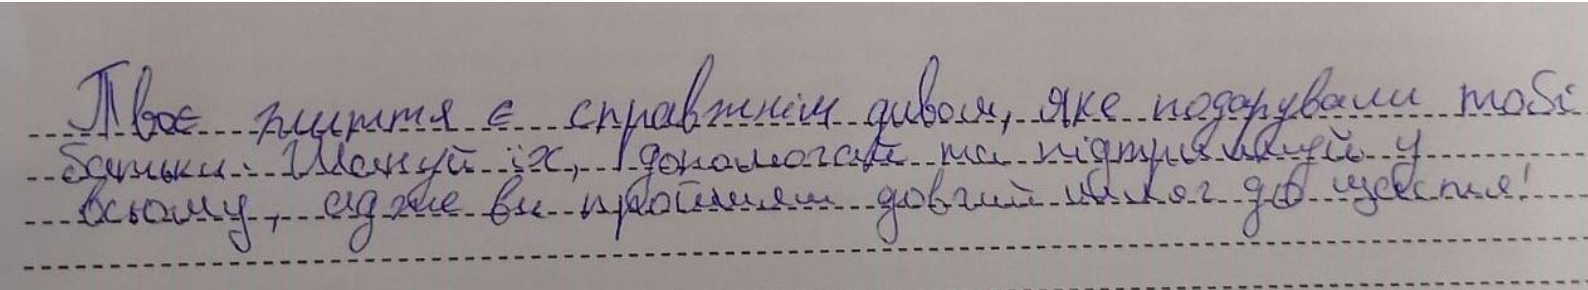 Твоє життя є справжнім дивом, яке подарували тобі
батьки. Шануй їх, допомагай та підтримуй у
всьому, адже ви пройшли довгий шлях до щастя!